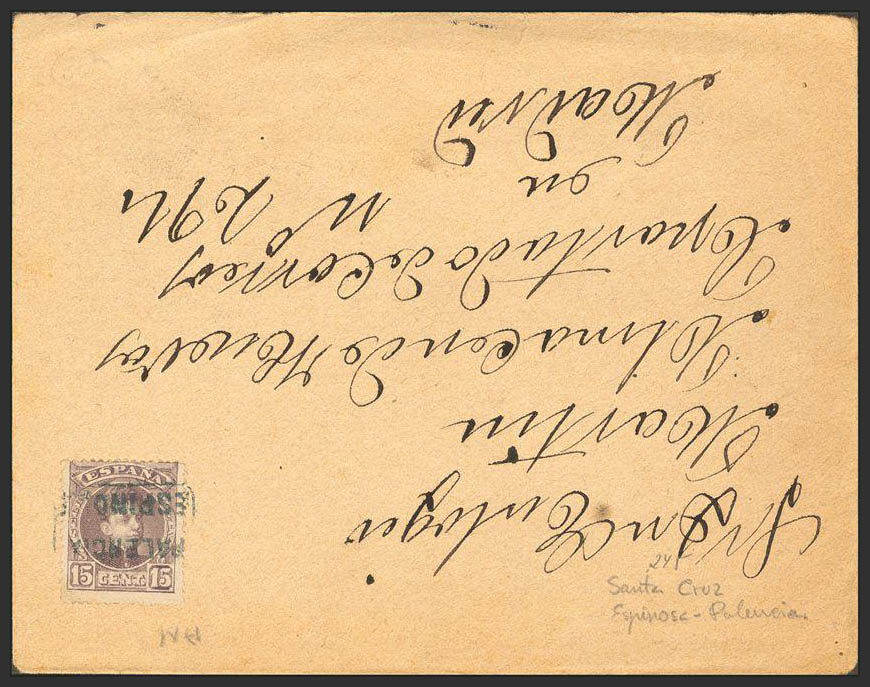 Sr Dn Eulogio
Martin
Almacen de Muebles
Apartado de Correos
nº 294
en
Madrid
ESPAÑA
15 CENT. 15
ESPINO
PALENCIA
24
Santa Cruz
Espinosa - Palencia